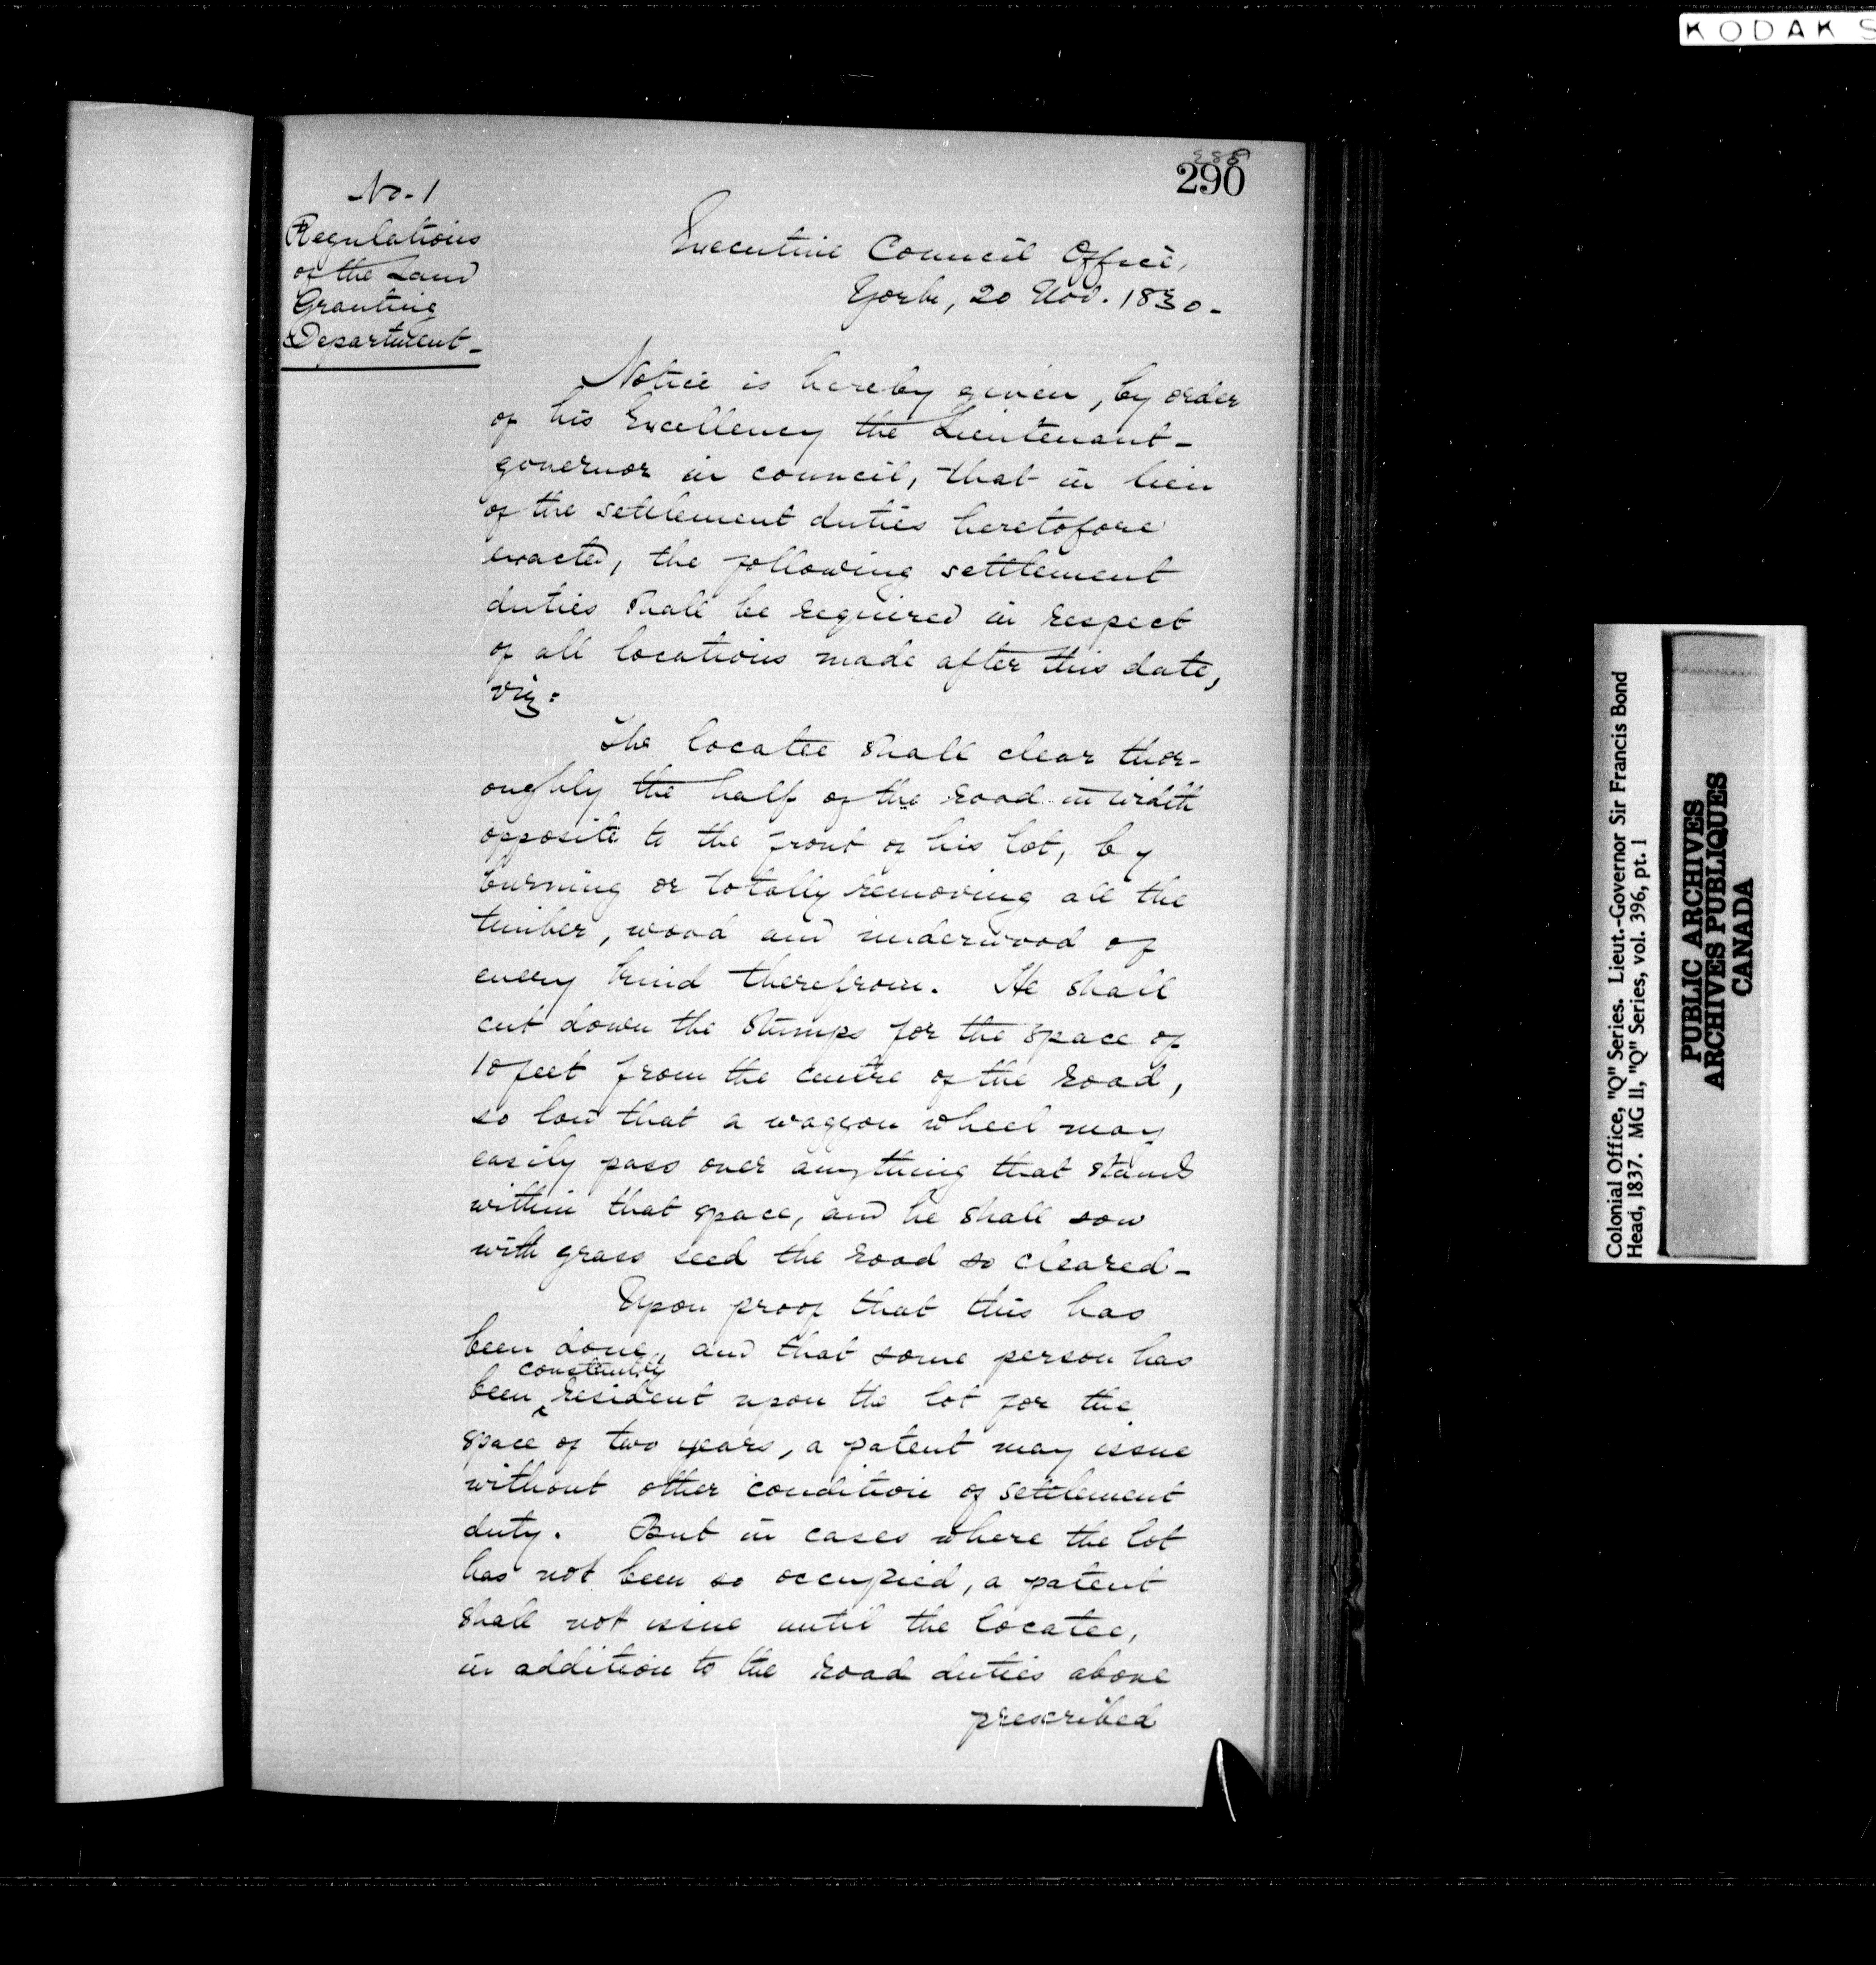 KODAK S
288
290
No. 1
Regulations
of the Land
Granting
Department-
Executive Council Office,
York, 20 Nov. 1830-
Notice is hereby given, by order
of his Excellency the Lieutenant-
governor in council, that in lieu
of the settlement duties heretofore
exacted, the following settlement
duties shall be required in respect
of all locations made after this date,
viz:
The locatee shall clear thor-
oughly the half of the road in width
opposite to the front of his lot, by
burning or totally removing all the
timber, wood and underwood of
every kind therefrom. He shall
cut down the stumps for the space of
10 feet from the centre of the road,
so low that a waggon wheel may
easily pass over anything that stands
within that space, and he shall sow
with grass seed the road so cleared-
Upon proof that this has
been done, and that some person has
been constantly resident upon the lot for the
space of two years, a patent may issue
without other condition of settlement
duty. But in cases where the lot
has not been so occupied, a patent
shall not issue until the locatee,
in addition to the road duties above
prescribed
Colonial Office, "Q" Series. Lieut.-Governor Sir Francis Bond
Head, 1837. MG 11, "Q" Series, vol. 396, pt. 1
PUBLIC ARCHIVES
ARCHIVES PUBLIQUES
CANADA